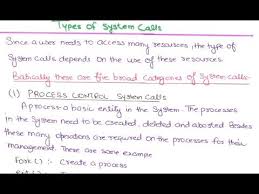 Types of System Calls
Since a user needs to access many resources, the type of
System calls depends on the use of these resources.
Basically there are five broad Categories of System calls
(1) PROCESS CONTROL System CALLS
A process a basic entity in the System. The processes
in the System need to be created, deleted and aborted. Besides
these many operations are required on the processes for their
management. These are some example
FORK() : Create a process